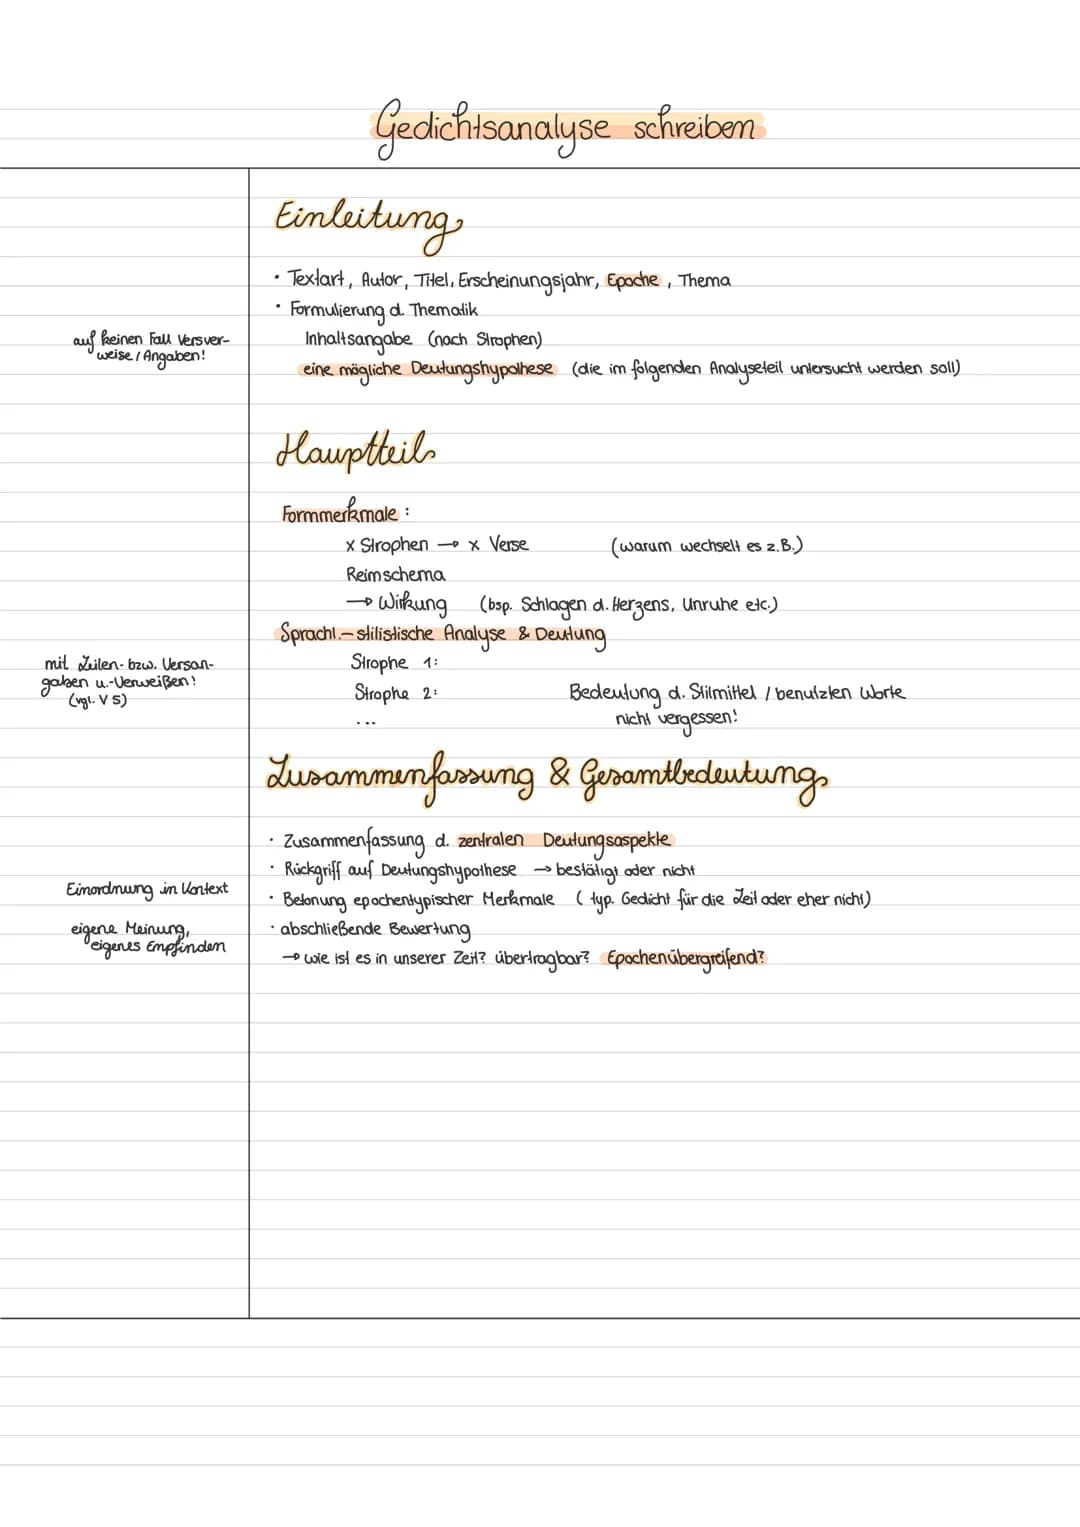 Gedichtsanalyse schreiben
Einleitung
• Textart, Autor, Titel, Erscheinungsjahr, Epoche, Thema
• Formulierung d. Thematik
auf keinen Fall Versver-
weise / Angaben!
Inhaltsangabe (nach Strophen)
eine mögliche Deutungshypothese (die im folgenden Analyseteil untersucht werden soll)
Hauptteil
Formmerkmale:
x Strophen → x Verse (warum wechselt es z.B.)
Reimschema
→ Wirkung (bsp. Schlagen d. Herzens, Unruhe etc.)
Sprachl.-stilistische Analyse & Deutung
mit Zeilen- bzw. Versan-
gaben u.-Verweißen!
(vgl. V 5)
Strophe 1:
Strophe 2: Bedeutung d. Stilmittel / benutzten Worte
... nicht vergessen!
Zusammenfassung & Gesamtbedeutung
• Zusammenfassung d. zentralen Deutungsaspekte
• Rückgriff auf Deutungshypothese → bestätigt oder nicht
Einordnung in Kontext
• Betonung epochentypischer Merkmale (typ. Gedicht für die Zeit oder eher nicht)
eigene Meinung,
eigenes Empfinden
• abschließende Bewertung
→ wie ist es in unserer Zeit? übertragbar? Epochenübergreifend?